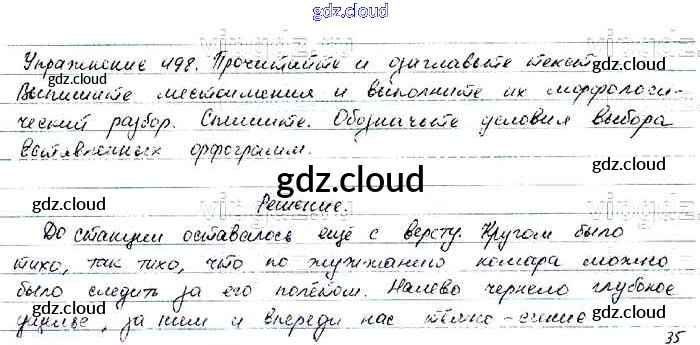 gdz.cloud
Упражнение 498. Прочитайте и озаглавьте текст
Выпишите местоимения и выполните их морфологи-
ческий разбор. Спишите. Обозначьте условия выбора
вставленных орфограмм.
gdz.cloud
Решение.
До станции оставалось ещё с версту. Кругом было
тихо, так тихо, что по жужжанию комара можно
было следить за его полётом. Налево чернело глубокое
ущелье, за ним и впереди нас тёмно-синие
35